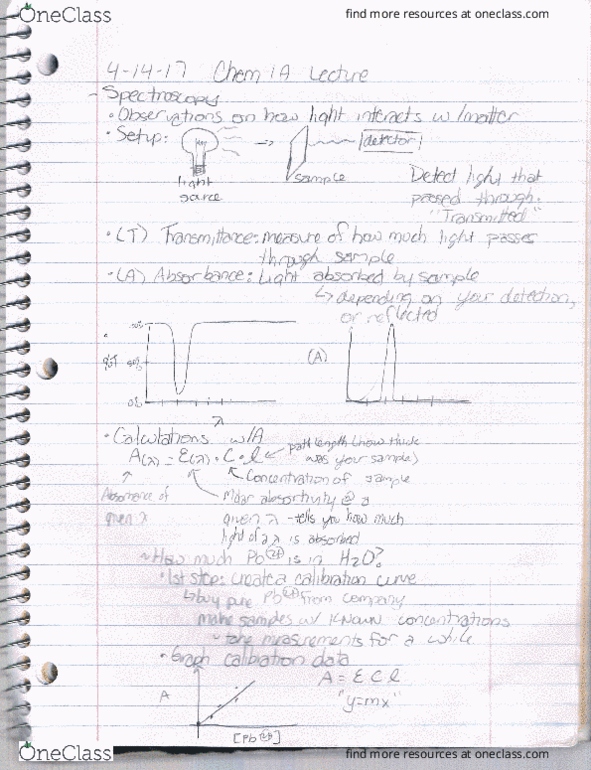 OneClass
find more resources at oneclass.com
4-14-17 Chem 1A Lecture
- Spectroscopy
• Observations on how light interacts w/matter
• Setup:
→
detector
light
source
sample
Detect light that
passed through.
"Transmitted"
• (T) Transmittance: measure of how much light passes
through sample
• (A) Absorbance: Light absorbed by sample
↳ depending on your detection,
or reflected
%T
0%
λ
(A)
• Calculations w/A
A(λ) = ε(λ) · C · l
path length (how thick
was your sample)
Concentration of sample
Absorbance of
given λ
Molar absortivity @ a
given λ - tells you how much
light of a λ is absorbed
~ How much Pb(2+) is in H2O?
• 1st step: create a calibration curve
↳ buy pure Pb(2+) from company
make samples w/ known concentrations
take measurements for a while
• Graph calibration data
A = ε C l
"y=mx"
A
[Pb(2+)]
OneClass
find more resources at oneclass.com